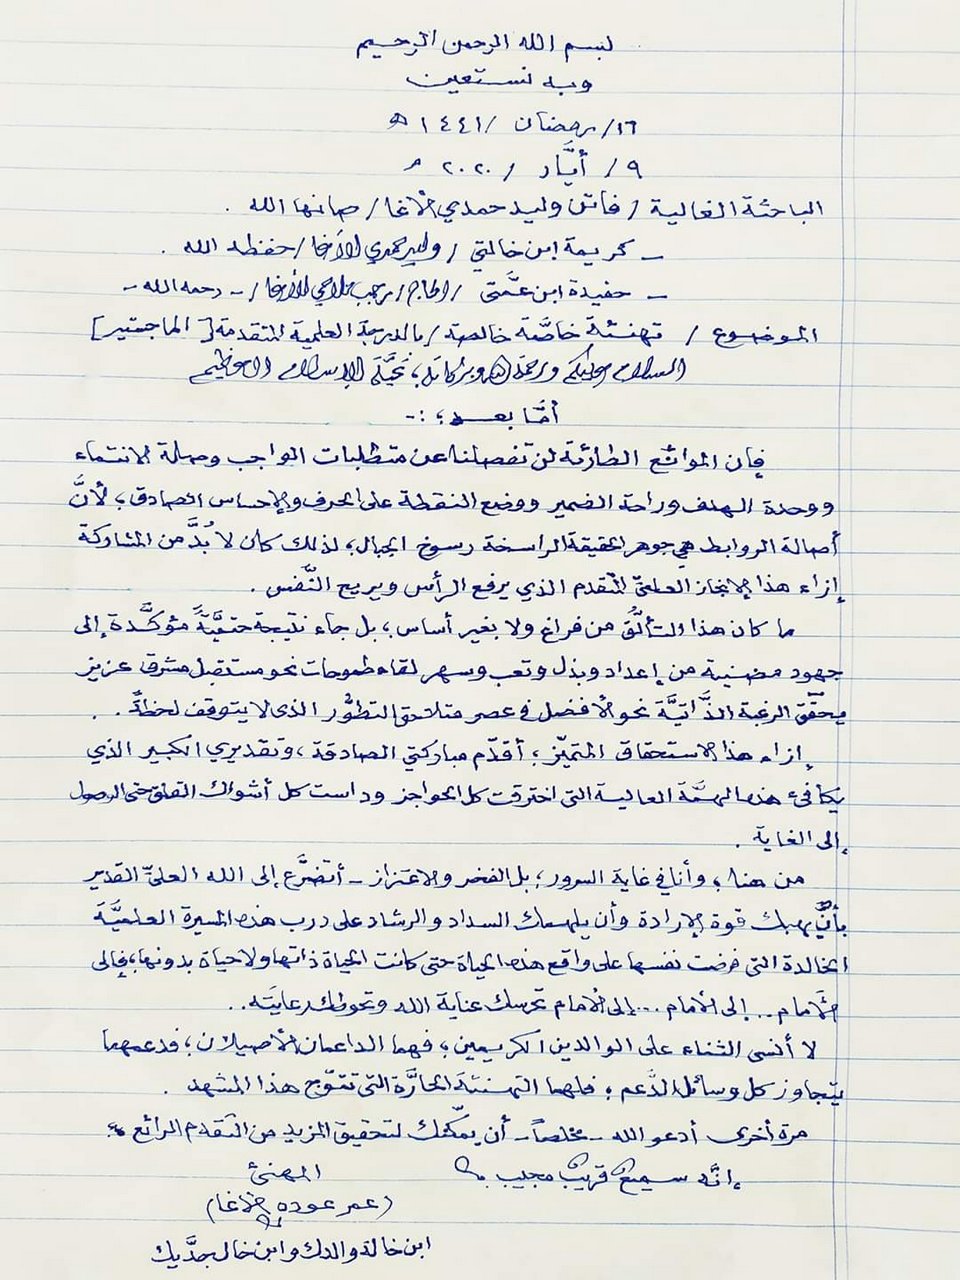 بسم الله الرحمن الرحيم
وبه نستعين
١٦/ رمضان /١٤٤١ ه
٩ / أيَّار / ٢٠٢٠ م
الباحثة الغالية / فاتن وليد حمدي الأغا / صانها الله .
– كريمة ابن خالتي / وليد حمدي الأغا / حفظه الله .
– حفيدة ابن عمَّتي / الحاج / رجب الأغا / – رحمه الله –
الموضوع / تهنئة خاصَّة خالصة / بالدرجة العلمية المتقدمة [ الماجستير ]
السلام عليكم ورحمة الله وبركاته ؛ تحيَّة الإسلام العظيم
أمَّا بعد ؛ :-
فإن الموانع الطارئة لن تفصلنا عن متطلبات الواجب وصلة الانتماء
ووحدة الهدف وراحة الضمير ووضع النقطة على الحرف والإحساس الصادق ؛ لأنَّ
أصالة الروابط هي جوهر الحقيقة الراسخة رسوخ الجبال ؛ لذلك كان لا بُدَّ من المشاركة
إزاء هذا الإنجاز العلميّ المتقدم الذي يرفع الرأس ويريح النَّفس .
ما كان هذا التألُّق من فراغ ولا بغير أساس ؛ بل جاء نتيجة حتميَّةً مؤكَّدة إلى
جهود مضنية من إعداد وبذل وتعب وسهر لقاء طموحات نحو مستقبل مشرق عزيز
يحقّق الرغبة الذَّاتيَّة نحو الأفضل في عصر متلاحق التطوُّر الذي لا يتوقف لحظةً . .
إزاء هذا الاستحقاق المتميّز ؛ أقدّم مباركتي الصادقة ، وتقديري الكبير الذي
يكافئ هذه الهمَّة العالية التي اخترقت كل الحواجز وداست كل أشواك القلق حتى الوصول
إلى الغاية .
من هنا ؛ وأنا في غاية السرور ؛ بل الفخر والاعتزاز – أتضرَّع إلى الله العليّ القدير
بأن يهبك قوة الإرادة وأن يلهمك السداد والرشاد على درب هذه المسيرة العلميَّة
الخالدة التي فرضت نفسها على واقع هذه الحياة حتى كانت الحياة ذاتها ولا حياة بدونها ؛ فإلى
الأمام .. إلى الأمام ... إلى الأمام تحرسك عناية الله وتحوطك رعايته ..
لا أنسى الثناء على الوالدين الكريمين ؛ فهما الداعمان الأصيلان ؛ فدعمهما
يتجاوز كل وسائل الدَّعم ؛ فلهما التهنئة الحارَّة التي تتوّج هذا المشهد .
مرة أخرى أدعو الله – مخلصاً – أن يمكّنك لتحقيق المزيد من التقدم الرائع ؛
إنَّه سميعٌ قريبٌ مجيب
المهنئ
(عمر عوده الأغا)
ابن خالة والدك وابن خال جدَّيك